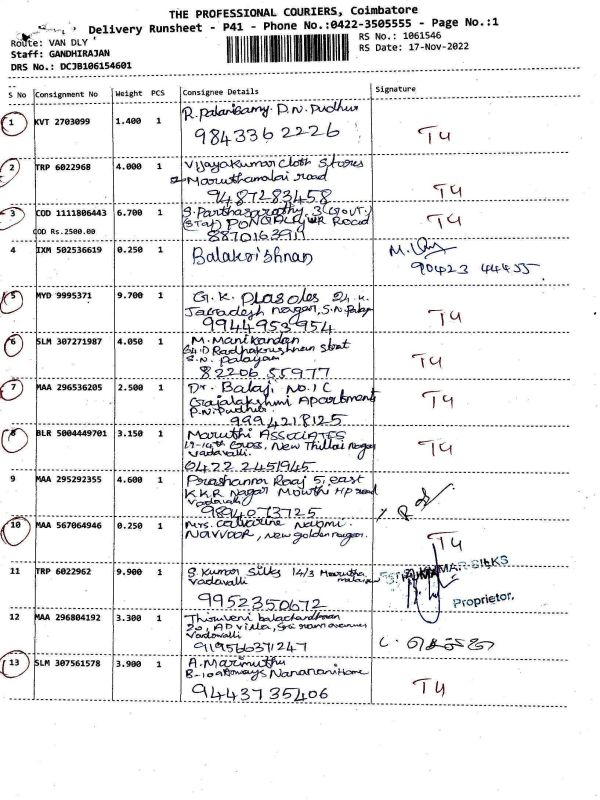 THE PROFESSIONAL COURIERS, Coimbatore
Delivery Runsheet - P41 - Phone No.:0422-3505555 - Page No.:1
Route: VAN DLY
RS No.: 1061546
Staff: GANDHIRAJAN
RS Date: 17-Nov-2022
DRS No.: DCJB106154601
S No Consignment No Weight PCS Consignee Details Signature
1 KVT 2703099 1.400 1 R. Palanisamy P.N. Pudhur
9843362226 T4
2 TRP 6022968 4.000 1 Vijayakumar Cloth Stores
Maruthamalai road
9487283458 T4
3 COD 1111806443 6.700 1 S. Parthasarathy, 3 (GOVT.)
COD Rs.2500.00 Road
8870163911 T4
4 IXM 502536619 0.250 1 Balakrishnan
90423 44455
5 MYD 9995371 9.700 1 G.K.
nagar, S.N. Palay
9944953954 T4
6 SLM 307271987 4.050 1 M. Manikandan
Radhakrishnan street
S.N. Palayam
82206 55977 T4
7 MAA 296536205 2.500 1 Dr. Balaji No.1C
Gajalakshmi Apartments
P.N. Pudhur
9994218125 T4
8 BLR 5004449701 3.150 1 Maruthi ASSOCIATES
Cross, New Thillai Nagar
Vadavalli.
0422 2451945 T4
9 MAA 295292355 4.600 1 Prashanna Raaj 5, east
K.K.R Nagar HP road
Vadavalli
9894073725
10 MAA 567064946 0.250 1 Mrs. Catharine Nagmi.
Navvoor, New golden nagar. T4
11 TRP 6022962 9.900 1 S. Kumar Silks 14/3 Marutha
malai
Vadavalli
9952350672
KUMAR SILKS
Proprietor.
12 MAA 296804192 3.300 1 Thiruveni balachandran
20, AD Villa, Sri ram avenue
Vadavalli
919566371247
13 SLM 307561578 3.900 1 A. Marimuthu
B-109 Nanarani Home
9443735406 T4